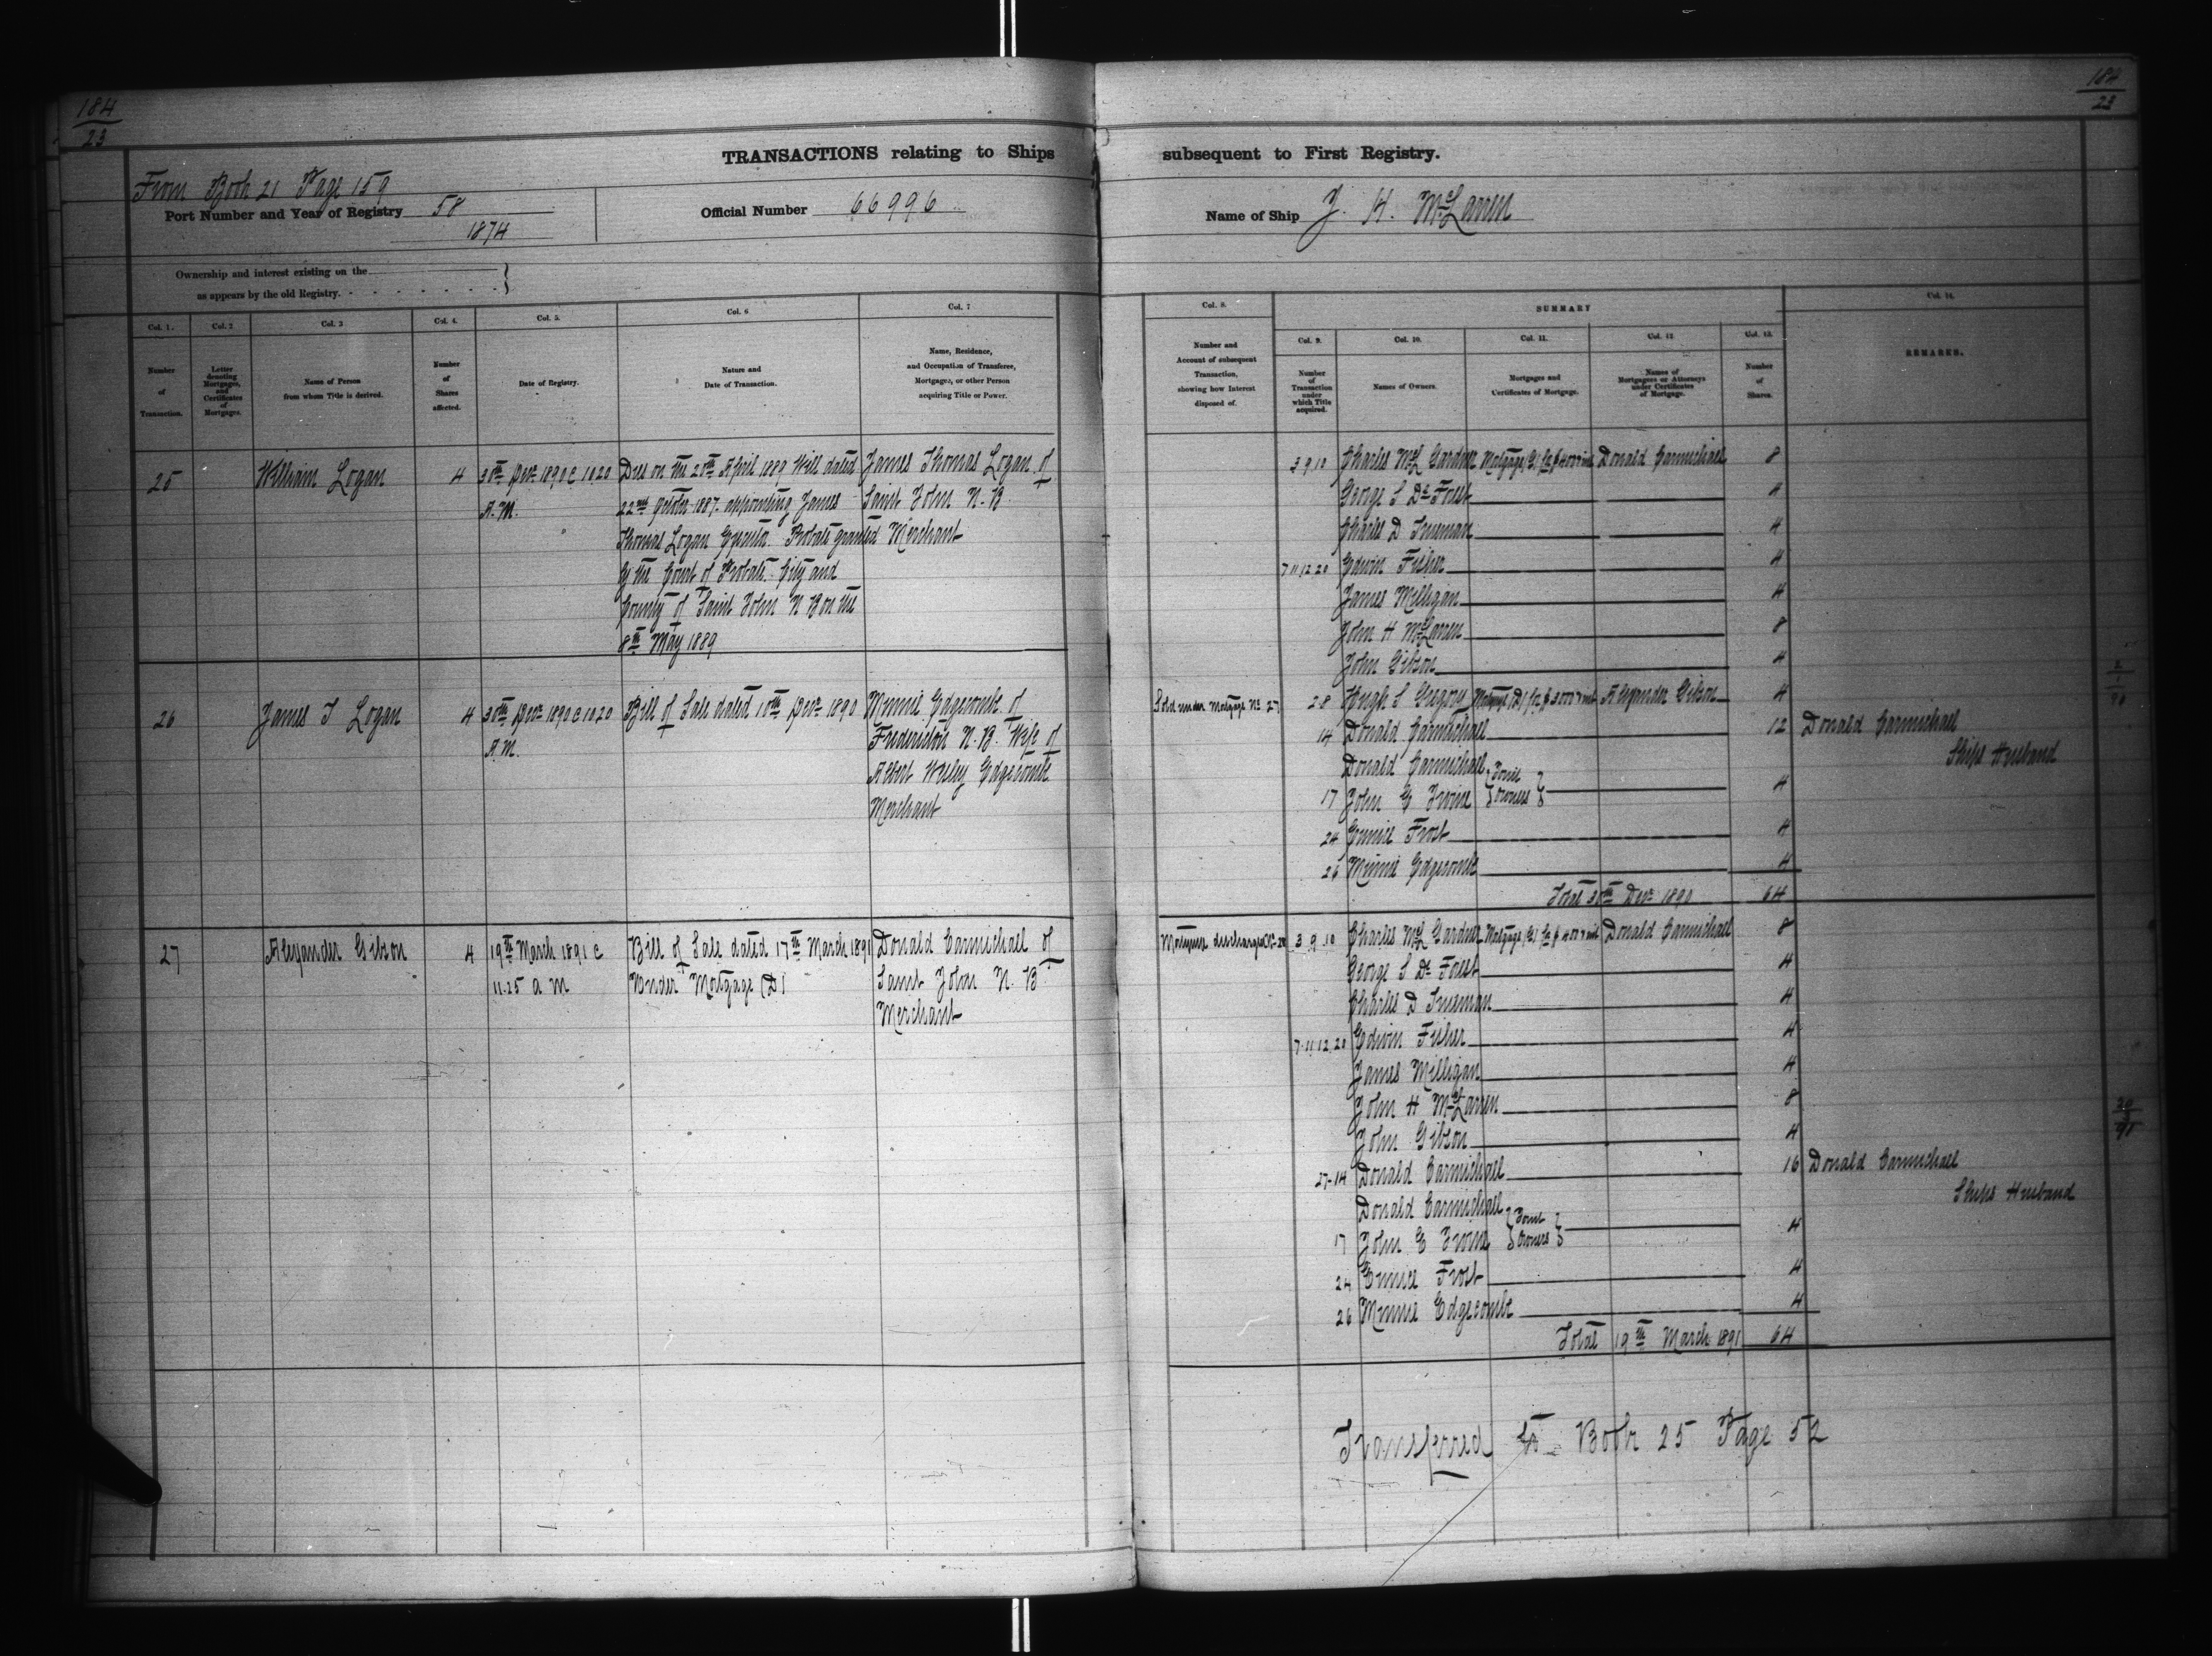 184
23
184
23
TRANSACTIONS relating to Ships subsequent to First Registry.
From Book 21 Page 159
Port Number and Year of Registry 58
1874
Official Number 66996
Name of Ship J. H. McLaren
Ownership and interest existing on the
as appears by the old Registry.
Col. 1.
Number
of
Transaction.
Col. 2
Letter
denoting
Mortgages,
and
Certificates
of
Mortgages.
Col. 3
Name of Person
from whom Title is derived.
Col. 4.
Number
of
Shares
affected.
Col. 5.
Date of Registry.
Col. 6
Nature and
Date of Transaction.
Col. 7
Name, Residence,
and Occupation of Transferee,
Mortgagee, or other Person
acquiring Title or Power.
Col. 8.
Number and
Account of subsequent
Transaction,
showing how Interest
disposed of.
SUMMARY
Col. 9.
Number
of
Transaction
under
which Title
acquired.
Col. 10.
Names of Owners.
Col. 11.
Mortgages and
Certificates of Mortgage.
Col. 12
Names of
Mortgagees or Attorneys
under Certificates
of Mortgage.
Col. 13.
Number
of
Shares.
Col. 14.
REMARKS.
25
William Logan
4
30th Decr 1890 @ 10 20
A.M.
Died on the 20th April 1889 Will dated
22nd October 1887 appointing James
Thomas Logan Executor. Probate granted
by the Court of Probate City and
County of Saint John N B on the
8th May 1889
James Thomas Logan of
Saint John N. B.
Merchant
26
James T Logan
4
30th Decr 1890 @ 10 20
A M.
Bill of Sale dated 10th Decr 1890
Minnie Edgecombe of
Fredericton N. B. Wife of
Albert Wesley Edgecombe
Merchant
27
Alexander Gibson
4
19th March 1891 @
11.25 a m
Bill of Sale dated 17th March 1891
Under Mortgage (D)
Donald Carmichael of
Saint John N. B
Merchant
3 9 10 Charles McL Gardner Mortgage (E) for $4000 & int Donald Carmichael 8
George S De Forest 4
Charles D Trueman 4
7 11 12 20 Edwin Fisher 4
James Milligan 4
John H McLaren 8
John Gibson 4
Sold under Mortgage No 27 2-8 Hugh S Gregory Mortgage (D) for $3000 & int Alexander Gibson 4
14 Donald Carmichael 12 Donald Carmichael
Ships Husband
Donald Carmichael
17 John E Irvine Joint Owners 4
24 Eunice Frost 4
26 Minnie Edgecombe 4
Total 30th Decr 1890 64
Mortgage discharged No 28 3 9 10 Charles McL Gardner Mortgage (E) for $4000 & int Donald Carmichael 8
George S De Forest 4
Charles D Trueman 4
7 11 12 20 Edwin Fisher 4
James Milligan 4
John H McLaren 8
John Gibson 4
27-14 Donald Carmichael 16 Donald Carmichael
Ships Husband
Donald Carmichael
17 John E Irvine Joint Owners 4
24 Eunice Frost 4
26 Minnie Edgecombe 4
Total 19th March 1891 64
Transferred to Book 25 Page 52